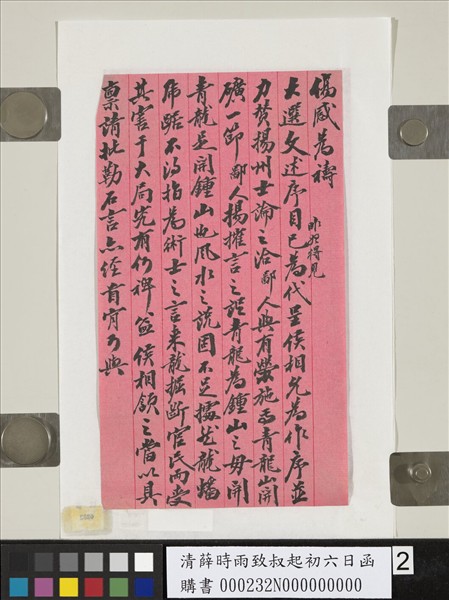 感為禱
大選文述序目已為代呈侯相允為作序並
昨始得見
力贊揚州士論之洽鄙人與有榮施焉青龍山開
礦一節鄙人揚搉言之謂青龍為鍾山之毋開
青龍是開鍾山也風水之說固不足據然龍蟠
虎踞不得指為術士之言來龍掘斷官民兩受
其害于大局究有何裨益侯相頷之當以具
稟請批勒石言亦經首肯可與
清薛時雨致叔起初六日函
購書 000232N000000000
2